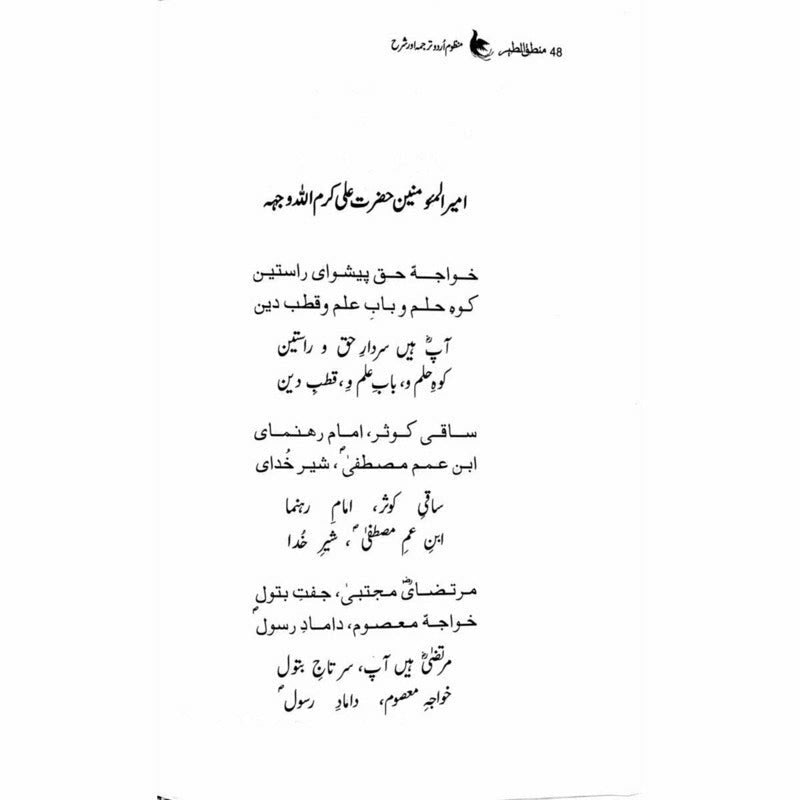 48 منطق الطیر منظوم اُردو ترجمہ اور شرح
امیر المئومنین حضرت علی کرم اللہ وجہہ
خواجۂ حق پیشوای راستین
کوہِ حلم و بابِ علم و قطب دین
آپؓ ہیں سردارِ حق و راستین
کوہِ حلم و، بابِ علم و، قطبِ دین
ساقی کوثر، امام رهنمای
ابن عمم مصطفیٰؐ، شیر خُدای
ساقیِ کوثر، امامِ رہنما
ابنِ عمِ مصطفیٰؐ، شیرِ خُدا
مرتضایؓ مجتبیٰ، جفتِ بتول
خواجۂ معصوم، دامادِ رسولؐ
مرتضیٰؓ ہیں آپ، سرتاجِ بتول
خواجہِ معصوم، دامادِ رسولؐ